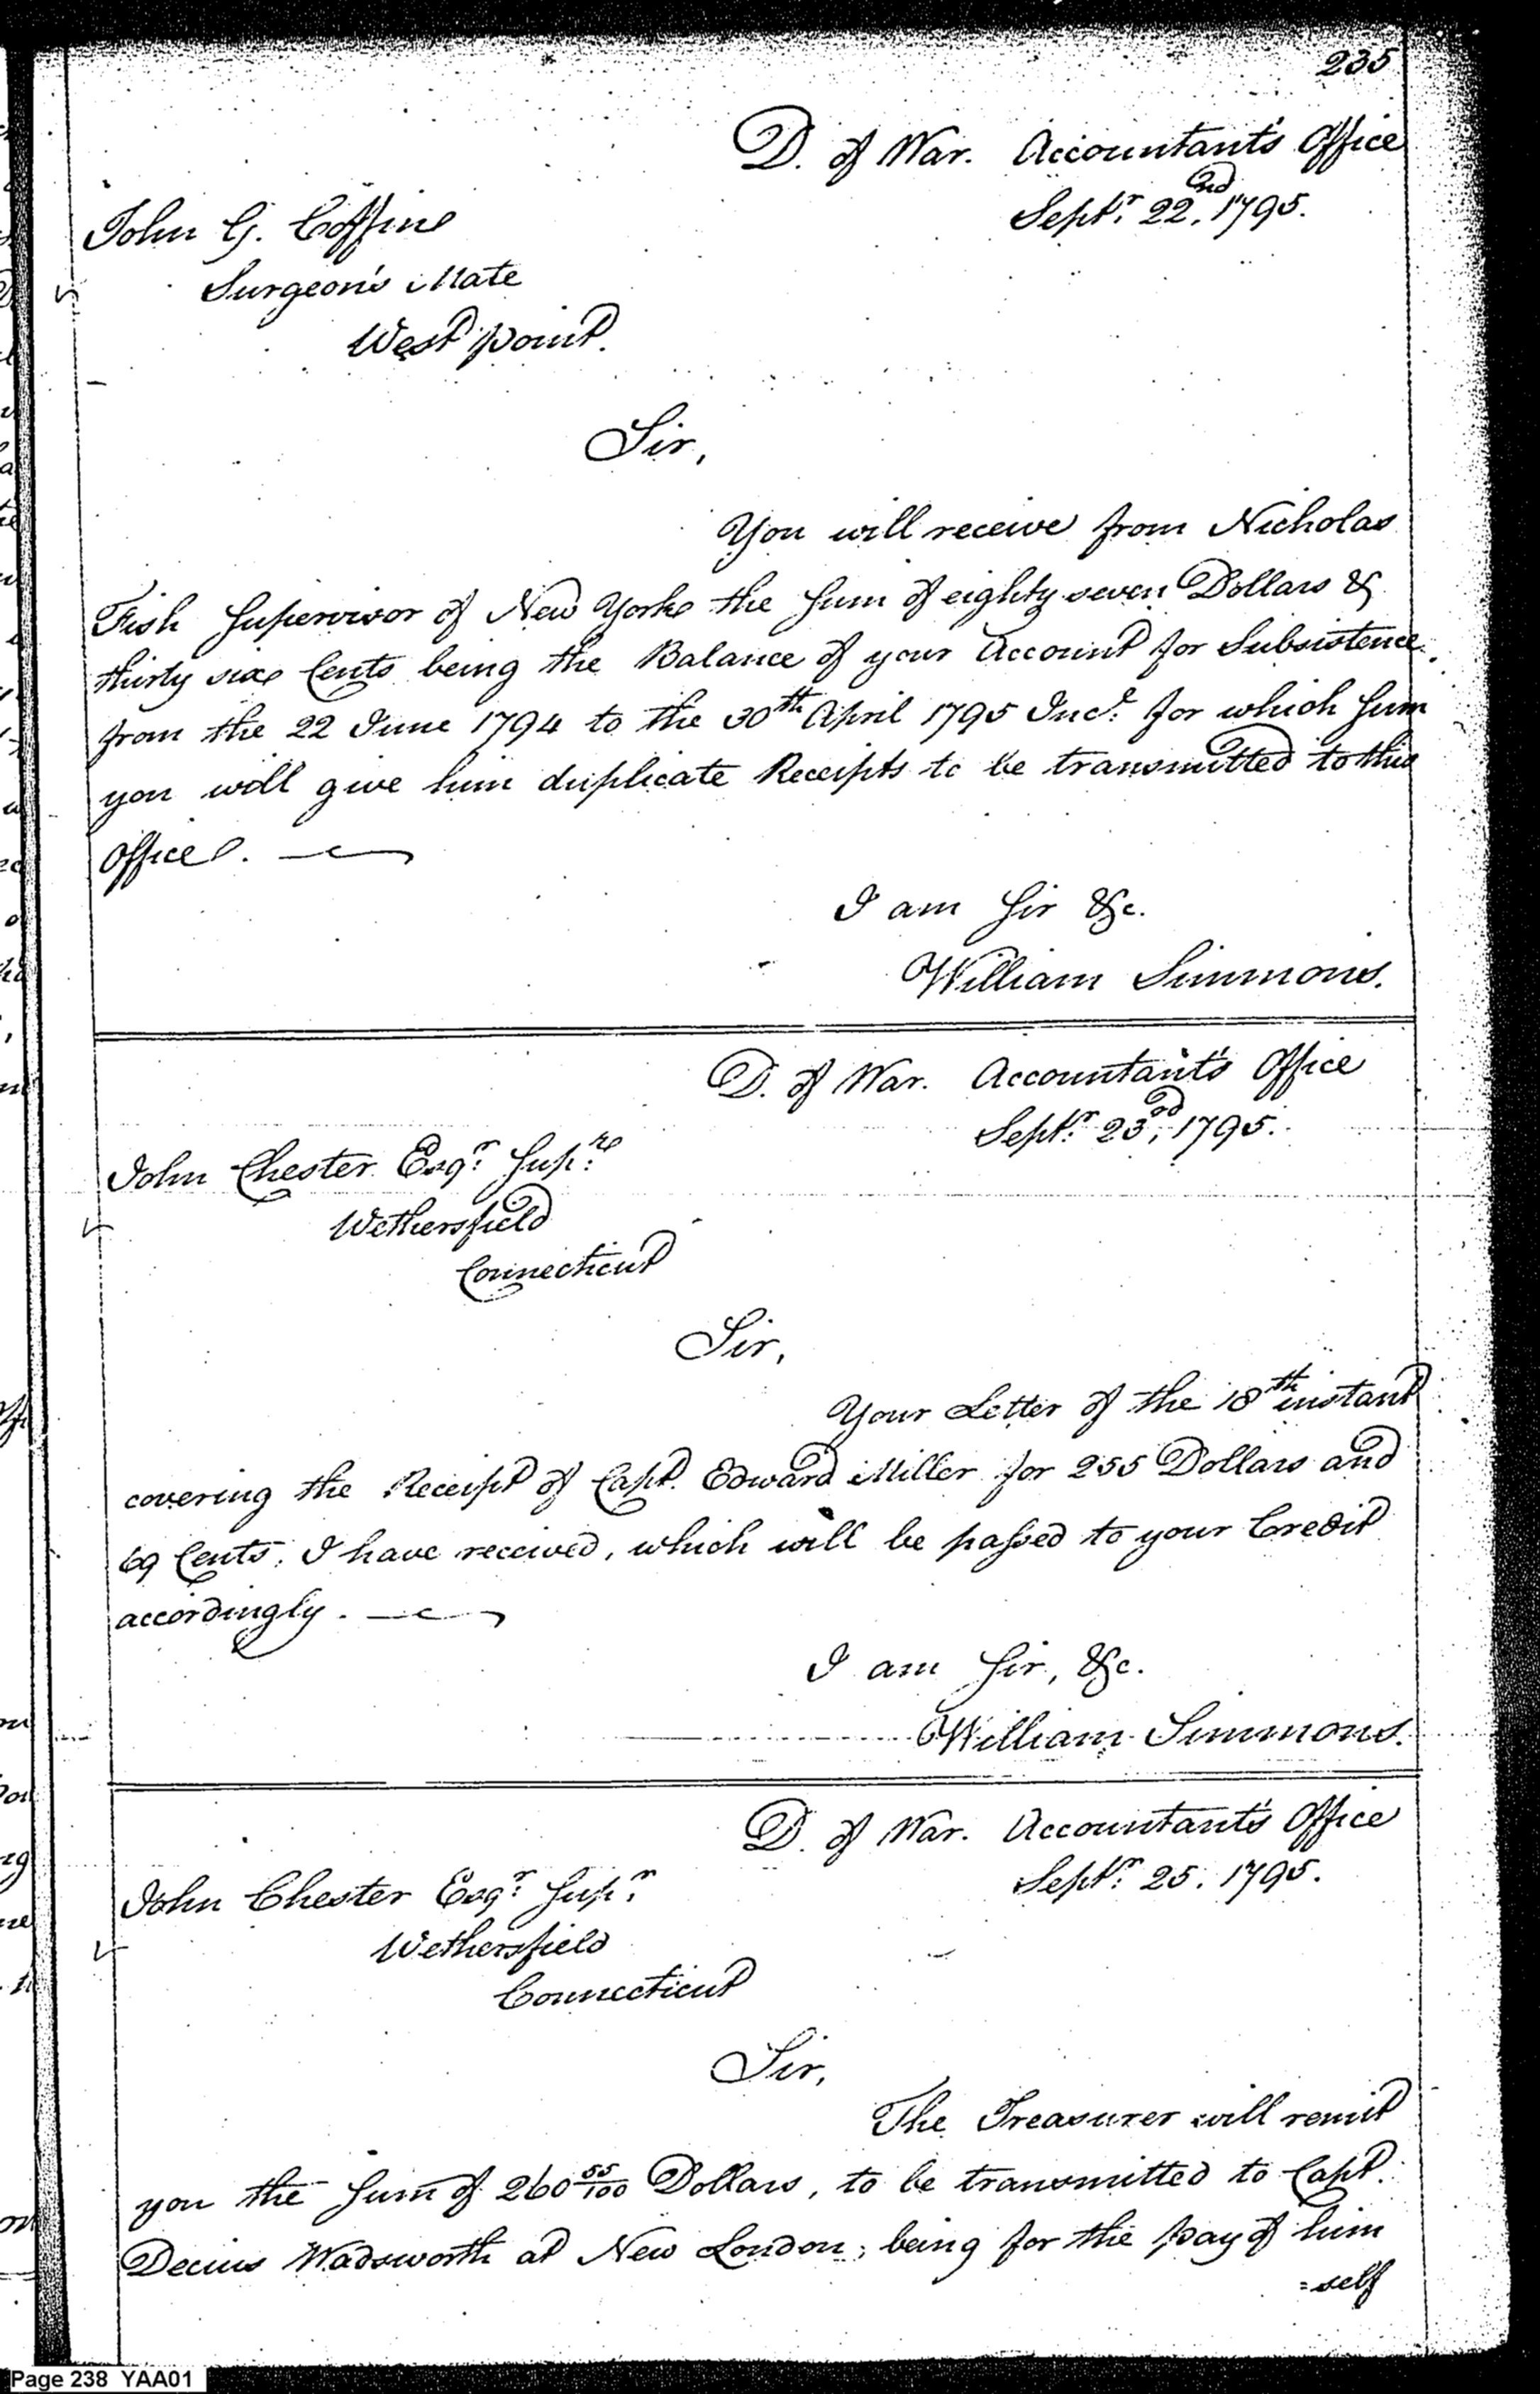 235
D. of War. Accountant's Office
Septr. 22nd, 1795.
John G. Coffine
Surgeon's Mate
West point.
Sir,
You will receive from Nicholas
Fish Supervisor of New York the Sum of eighty seven Dollars &
thirty six Cents being the Balance of your Account for Subsistence
from the 22 June 1794 to the 30th April 1795 Incl. for which Sum
you will give him duplicate Receipts to be transmitted to this
Office.
I am Sir &c.
William Simmons.
D. of War. Accountant's Office
Septr. 23rd, 1795.
John Chester Esqr. Supr.
Wethersfield
Connecticut
Sir,
Your Letter of the 18th instant
covering the Receipt of Capt. Edward Miller for 255 Dollars and
69 Cents. I have received, which will be passed to your Credit
accordingly.
I am Sir, &c.
William Simmons.
D. of War. Accountant's Office
Septr. 25. 1795.
John Chester Esqr. Supr.
Wethersfield
Connecticut
Sir,
The Treasurer will remit
you the Sum of 260 55/100 Dollars, to be transmitted to Capt.
Decius Wadsworth at New London, being for the pay of him
=self
Page 238 YAA01